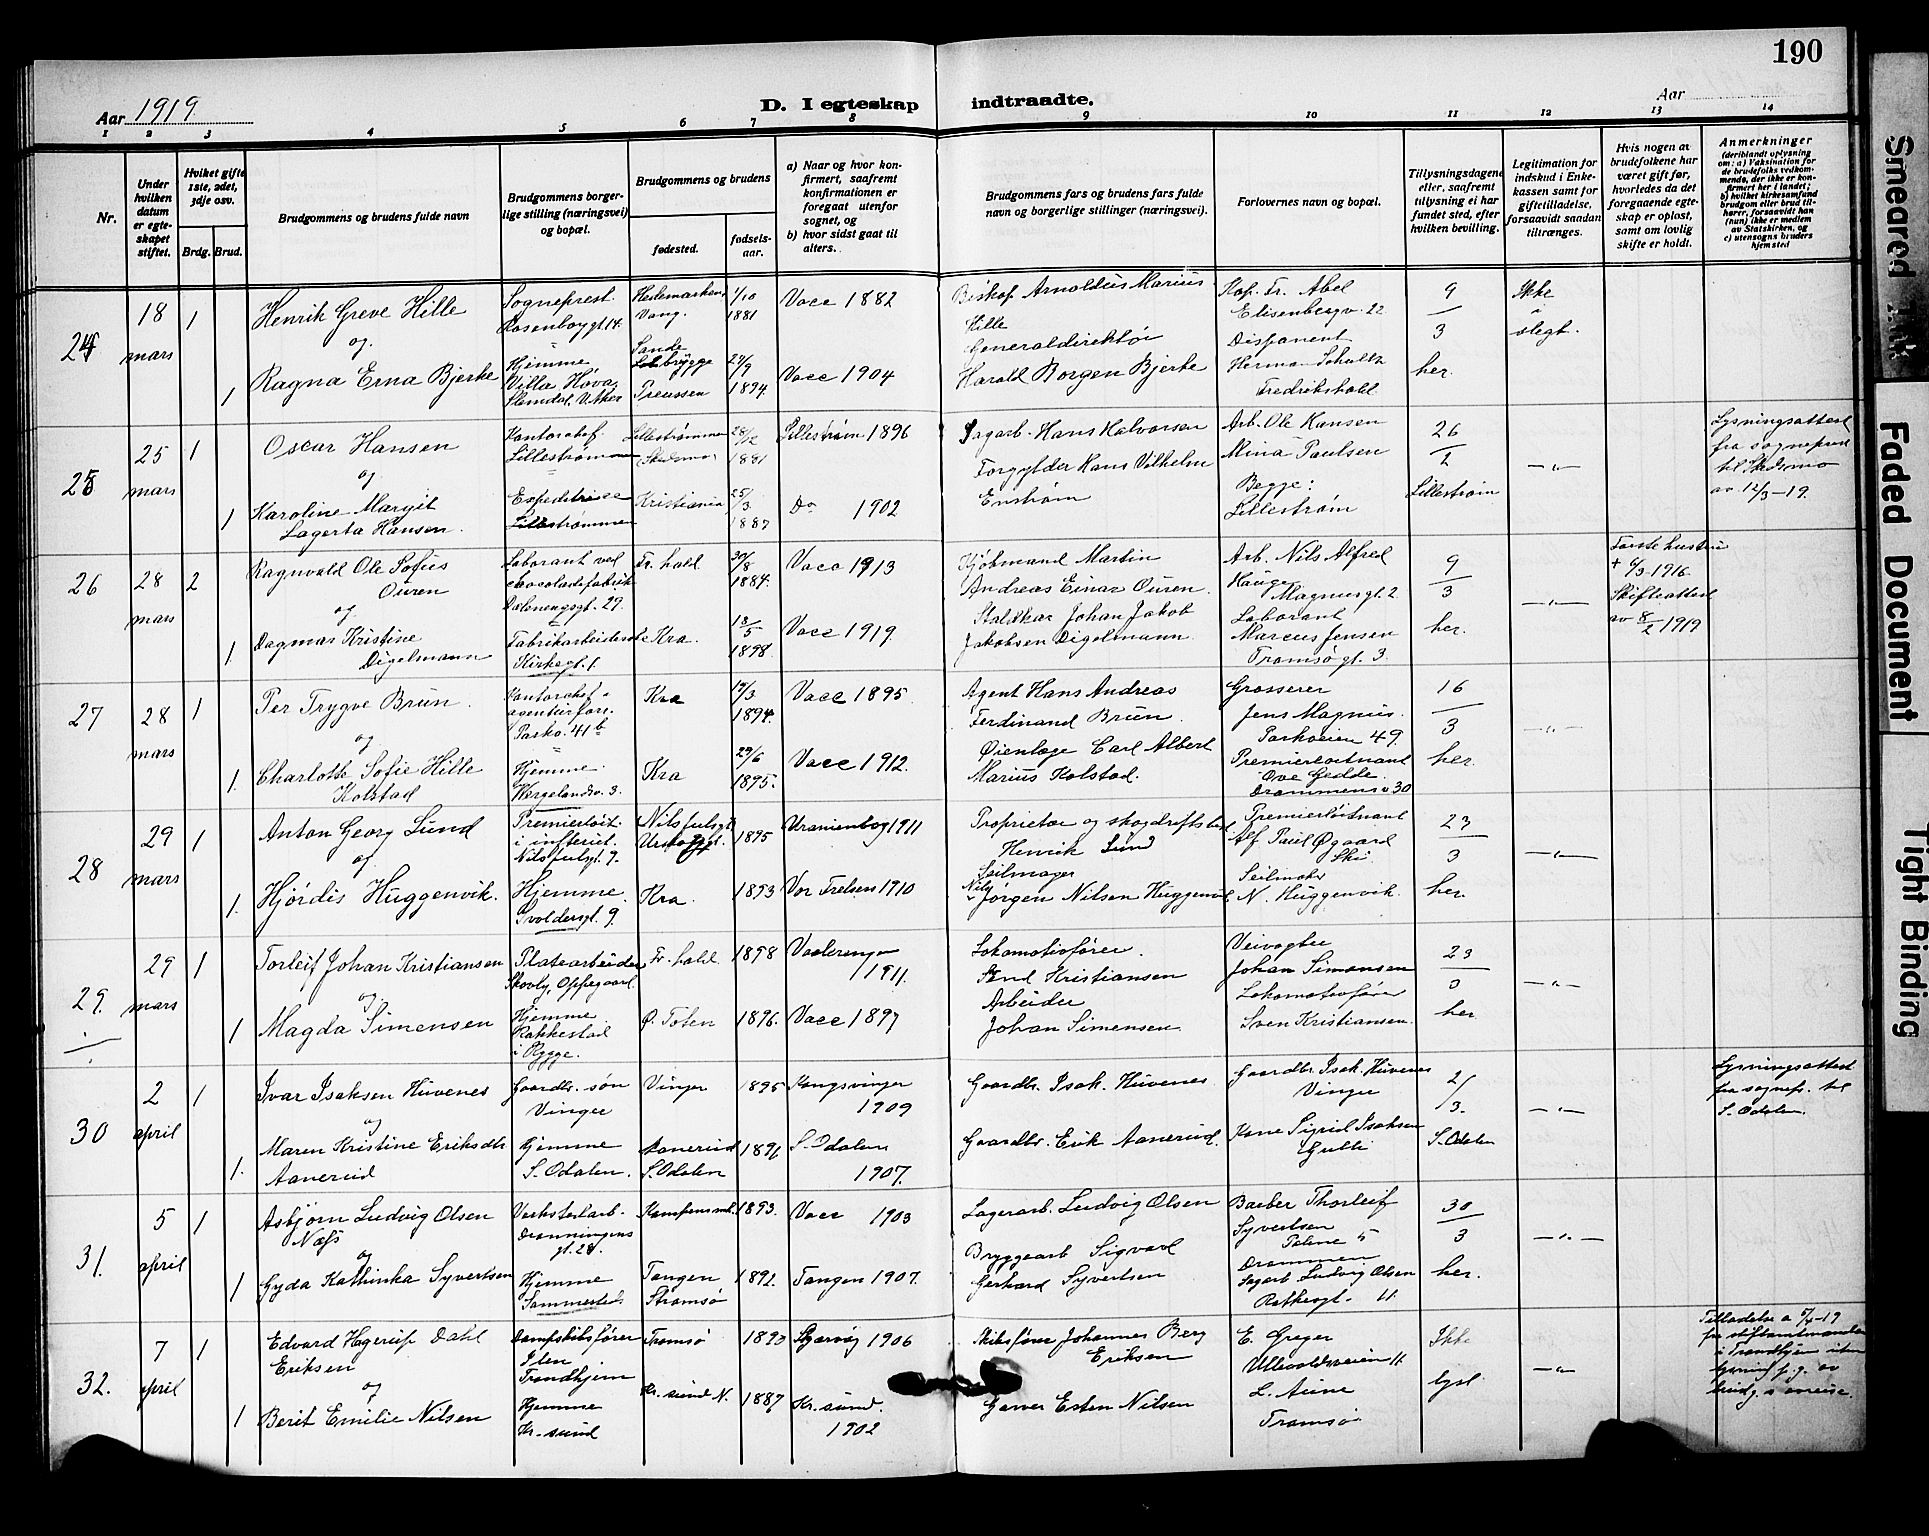 190
Aar 1919.
D. I egteskap indtraadte.
Aar
1 2 3 4 5 6 7 8 9 10 11 12 13 14
Nr.
Under hvilken datum er egteskapet stiftet.
Hvilket gifte 1ste, 2det, 3dje osv.
Brdg. Brud.
Brudgommens og brudens fulde navn
Brudgommens borgerlige stilling (næringsvei) og bopæl.
Brudgommens og brudens
fødested.
fødselsaar.
a) Naar og hvor konfirmert, saafremt konfirmationen er foregaat utenfor sognet, og
b) hvor sidst gaat til alters.
Brudgommens fars og brudens fars fulde navn og borgerlige stillinger (næringsvei).
Forlovernes navn og bopæl.
Tillysningsdagene eller, saafremt tillysning ei har fundet sted, efter hvilken bevilling.
Legitimation for indskud i Enkekassen samt for giftetilladelse, forsaavidt saadan tiltrænges.
Hvis nogen av brudefolkene har været gift før, hvorledes da det foregaaende egteskap er opløst, samt om lovlig skifte er holdt.
Anmerkninger
(deriblandt oplysning om: a) Vaksination for de brudefolks vedkommende, der ikke er konfirmert her i landet; b) hvilket kirkesamfund brudgom eller brud tilhører, forsaavidt han (hun) ikke er medlem av Statskirken, og c) utensogns bruders hjemsted
24
18 mars
1
Henrik Greve Hille
Sogneprest
Rosenborggt 14.
Hedemarken, Vang.
1/10 1881
Vace 1882
Biskop Arnoldus Marius Hille
Kap. Fr. Abel
Elisenbergv. 22
9
/
3
her.
Ikke
slegt.
og
1
Ragna Erna Bjerke
Hjemme
Villa Høva,
Slemdal, V. Aker
Sande
Preussen
1894
Vace 1904
Generaldirektør
Harald Borgen Bjerke
Disponent
Herman Schultz
Fredrikshald
25
25 mars
1
Oscar Hansen
Kontorchef.
Lillestrømmen
Lillestrømmen
(Skedsmo)
28/12 1881
Lillestrøm 1896
Sagarb. Hans Halvorsen
Arb. Ole Hansen
Mina Paulsen
Begge:
Lillestrøm
26
/
2
Lillestrøm
— " —
Lysningsattest
fra sogneprest
til Skedsmo
av 12/3-19.
og
1
Karoline Margit
Lagerta Hansen.
Lillestrømmen
Kristiania
25/3 1887
Do 1902
Forgylder Hans Vilhelm
Enstrøm
26
28 mars
2
Ragnvald Ole Sofus
Ouren
Laborant ved
chocoladefabrik
29.
Fr. hald
30/8 1884.
Vace 1913
Kjøbmand Martin
Andreas Einar Ouren.
Arb. Nils Alfred
Hauge
Magnusgt. 2
9
/
3
her.
— " —
Første hustru
+ 6/3-1916.
Skifteattest
av 8/2 1919
og
1
Dagmar Kristine
Digelmann
Fabrikarbeiderske
Kirkegt. 1.
Kra.
18/5 1898.
Vace 1919
Staldkar Johan Jakob
Jakobsen Digelmann.
Laborant
Marcus Jensen
Tromsøgt. 3.
27
28 mars
1
Per Trygve Brun.
Kontorchef
agenturforr.
Parkv. 41 b
Kra
19/3 1894.
Vace 1895
Agent Hans Andreas
Ferdinand Brun.
Grosserer
Jens Magnus.
Parkveien 49.
16
/
3
her.
— " —
og
1.
Charlotte Sofie Hille
Kolstad
Hjemme.
Wergelandsv. 3.
Kra
29/6 1895.
Vace 1912.
Øienlæge Carl Albert
Marius Kolstad.
Premierløitnant
Ove Gedde.
Drammensv 30
28
29 mars
1
Anton Georg Lund
Premierløit.
i infteriet.
Nilsjuelsgt. 9.
Nilsjuelsgt.
1895
Uranienborg 1911
Proprietær og skogdriftsbest
Henrik Lund
Premierløitnant
Alf Paul Øgaard
Ski
23
/
3
her.
— " —
og
1.
Hjørdis Huggenvik.
Hjemme.
Svoldersgt. 9.
Kra.
1893
Vor Frelsers 1910
Seilmager
Nils
Jørgen Nilsen Huggenvik
Seilmaker
N. Huggenvik.
29.
29 mars
1
Torleif Johan Kristiansen
Platearbeider
Skovly, Oppegaard.
Fr. hald.
1898
Vaalerengen
1911.
Lokomotivfører.
Kristiansen
Veivogter
Johan Simensen
23
/
3
her
— " —
og
1
Magda Simensen
Hjemme
Rakkestad
i Rygge.
Ø. Toten
1896.
Vace 1897
Arbeider
Johan Simensen
Lokomotivfører
Sven Kristiansen.
30
2 april
1
Ivar Isaksen Huvenes
Gaardbr. søn
Vinger
Vinger
1895
Kongsvinger
1909
Gaardbr. Isak. Huvenes
Gaardbr. Isak Huvenes
Vinger
2/
/3.
S. Odalen
— " —
Lysningsattest
fra sognepr. til
S. Odalen.
og
1.
Maren Kristine Eriksdtr.
Aanerud
Hjemme
S. Odalen.
Aanerud
S. Odalen
1891
S. Odalen
1907.
Gaardbr. Erik Aanerud.
Kone Sigrid Isaksen
Gubli
31.
5 april
1
Asbjørn Ludvig Olsen
Næss
Verkstedarb.
Dronningens
gt. 28.
1893.
Vace 1903
Lagerarb. Ludvig Olsen
Barber Thorleif
Syvertsen
Tolene 5
Drammen
30
/
3
her.
— " —
og
1
Gyda Kathinka Syvertsen
Hjemme
Sammested.
Tangen
Strømsø
1892.
Tangen 1907.
Bryggearb Sigvard
Gerhard Syvertsen
Lagarb Ludvig Olsen
Rathesgt. 11.
32.
7 april
1
Edvard Hagerup Dahl
Eriksen
Dampskibsfører
Ilen
Trondhjem
Tromsø
1890
1906
Skibsfører Johannes Berg
Eriksen
E. Greger
Ullevoldsveien 11.
Ikke
lyst
— " —
Tilladelse a 5/4-19
fra stiftamtmanden
i Trondhjem
og
1
Berit Emilie Nilsen
Hjemme
Kr. sund
Kr. sund N.
1887
Kr. sund.
1902
Garver Esten Nilsen
L. Aune
Tromsø
Smeared Ink
Faded Document
Tight Binding